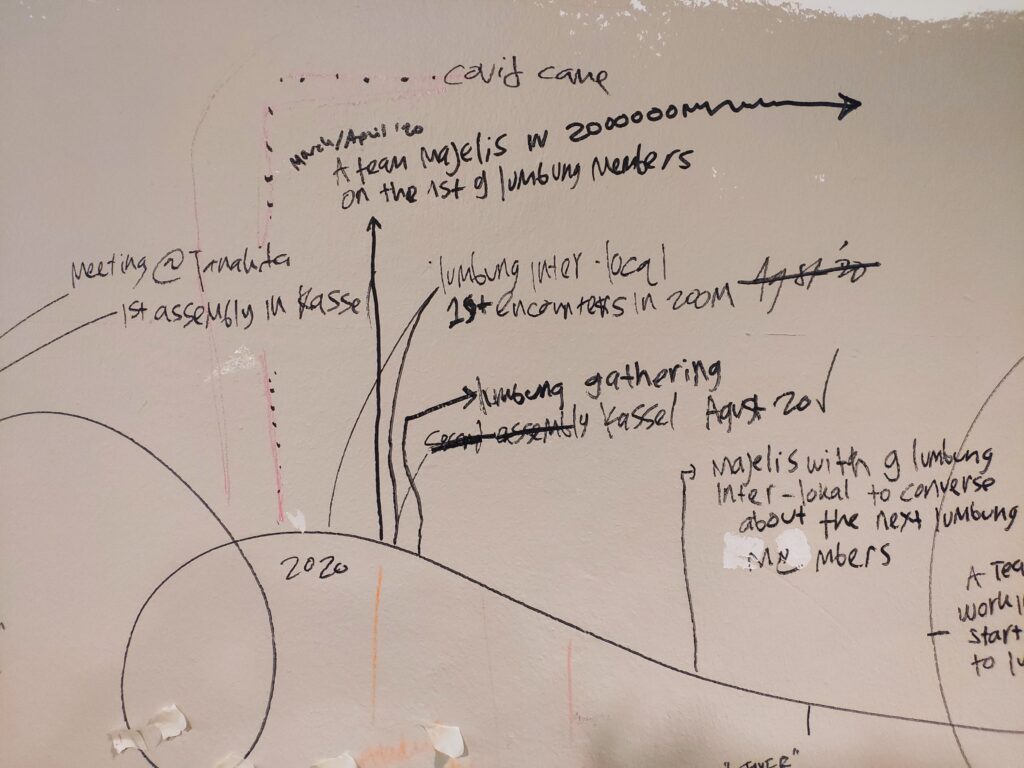 covid came
March/April '20
A team Majelis in 2000000M
on the 1st 9 lumbung Members
Meeting @ Tanakita
1st assembly in Kassel
lumbung inter-local
1st encounters in 200M Agst '20
lumbung gathering
Second assembly Kassel Agust 20
Majelis with 9 lumbung
Inter-lokal to converse
about the next lumbung
members
2020
A Tea
worki
start
to lu